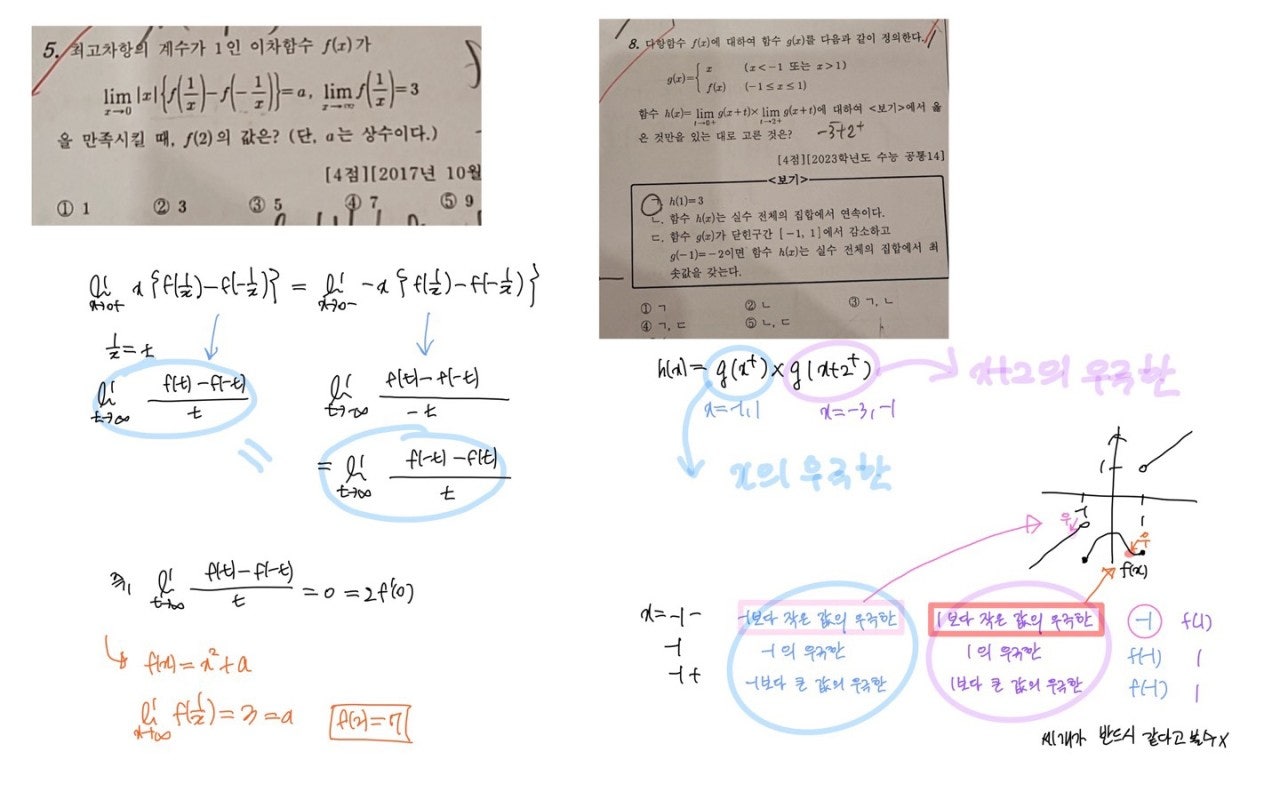 5. 최고차항의 계수가 1인 이차함수 f(x)가
lim_{x→0} |x|{f(1/x)-f(-1/x)}=a, lim_{x→∞} f(1/x)=3
을 만족시킬 때, f(2)의 값은? (단, a는 상수이다.)
[4점][2017년 10월
① 1 ② 3 ③ 5 ④ 7 ⑤ 9
lim_{x→0+} x{f(1/x)-f(-1/x)} = lim_{x→0-} -x{f(1/x)-f(-1/x)}
1/x=t
lim_{t→∞} (f(t)-f(-t))/t
lim_{t→-∞} (f(t)-f(-t))/-t
=
= lim_{t→∞} (f(-t)-f(t))/t
즉, lim_{t→∞} (f(t)-f(-t))/t =0=2f'(0)
f(x)=x²+a
lim_{x→∞} f(1/x)=3=a f(2)=7
8. 다항함수 f(x)에 대하여 함수 g(x)를 다음과 같이 정의한다.
g(x)={ x (x<-1 또는 x>1)
f(x) (-1≤x≤1)
함수 h(x)= lim_{t→0+} g(x+t)× lim_{t→2+} g(x+t)에 대하여 <보기>에서 옳
은 것만을 있는 대로 고른 것은? -3+2⁺
[4점][2023학년도 수능 공통14]
<보기>
ㄱ. h(1)=3
ㄴ. 함수 h(x)는 실수 전체의 집합에서 연속이다.
ㄷ. 함수 g(x)가 닫힌구간 [-1, 1]에서 감소하고
g(-1)=-2이면 함수 h(x)는 실수 전체의 집합에서 최
솟값을 갖는다.
① ㄱ ② ㄴ ③ ㄱ, ㄴ
④ ㄱ, ㄷ ⑤ ㄴ, ㄷ
h(x)= g(x⁺)×g(x+2⁺) x+2의 우극한
x=-1,1 x=-3,-1
x의 우극한
1
-1 1
우
f(x)
x=-1- -1보다 작은 값의 우극한 1보다 작은 값의 우극한 -1 f(1)
-1 -1의 우극한 1의 우극한 f(-1) 1
-1+ -1보다 큰 값의 우극한 1보다 큰 값의 우극한 f(-1) 1
세개가 반드시 같다고 볼수X